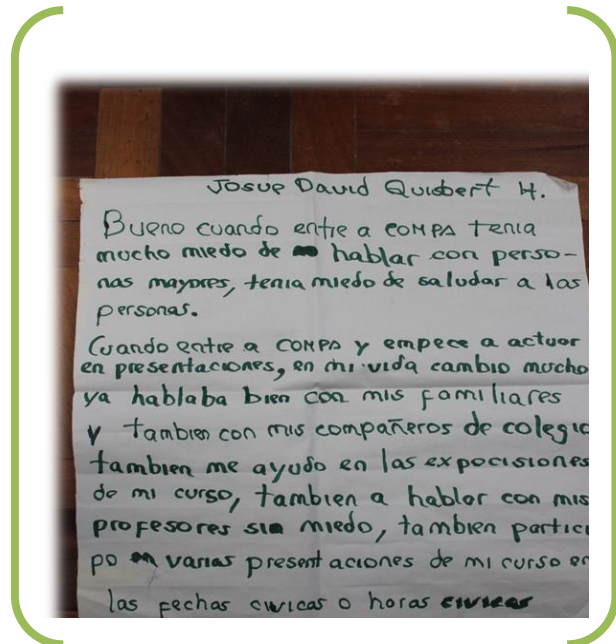 Josue David Quisbert H.
Bueno cuando entre a COMPA tenia
mucho miedo de hablar con perso-
nas mayores, tenia miedo de saludar a las
personas.
Cuando entre a COMPA y empece a actuar
en presentaciones, en mi vida cambio mucho
ya hablaba bien con mis familiares
y tambien con mis compañeros de colegio
tambien me ayudo en las expocisiones
de mi curso, tambien a hablar con mis
profesores sin miedo, tambien partici
po en varias presentaciones de mi curso en
las fechas civicas o horas civicas